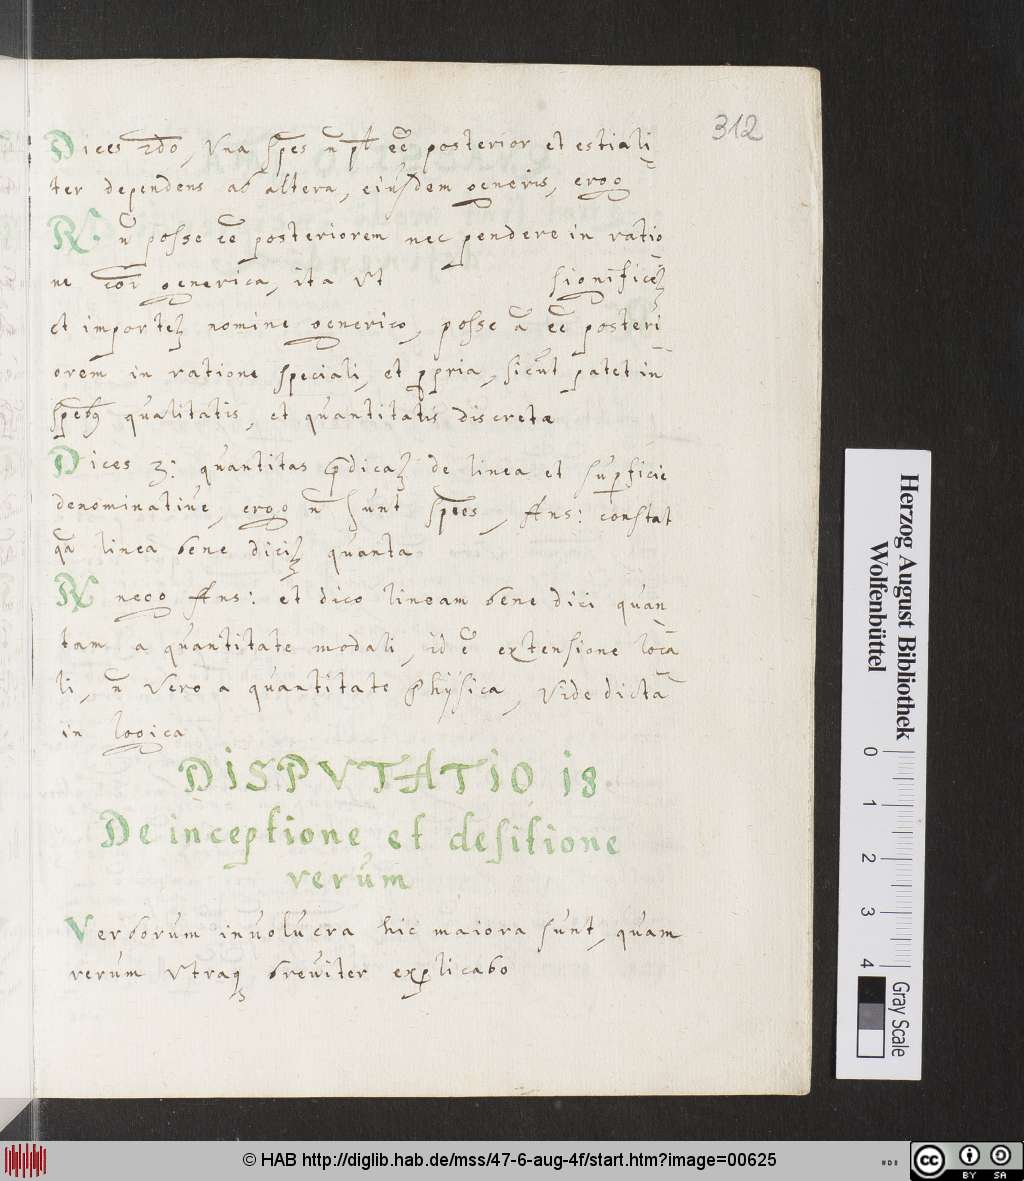 312
Dices 2do, Vna sp̄es n̄ pt̄ eē posterior et estiali-
ter dependens ab altera, eiusdem generis, ergo
R. n̄ posse eē posteriorem nec pendere in ratio-
ne coī generica, ita vt significet
et importet nomine generico, posse ā eē posteri-
orem in ratione speciali, et ꝓpria, sicut patet in
sp̄ebus qualitatis, et quantitatis discretæ
Dices 3: quantitas p̄dicatur de linea et suꝑficie
denominatiue, ergo n̄ sunt sp̄es, Ans: constat
qā linea bene dicitur quanta
R nego Ans: et dico lineam bene dici quan-
tam a quantitate modali, id ē extensione loca-
li, n̄ vero a quantitate physica, Vide dicta
in logica
DISPVTATIO 18
De inceptione et desitione
rerum
Verborum inuolucra hic maiora sunt, quam
rerum vtraq; breuiter explicabo
Herzog August Bibliothek
Wolfenbüttel
0 1 2 3 4
Gray Scale
© HAB http://diglib.hab.de/mss/47-6-aug-4f/start.htm?image=00625
cc BY SA